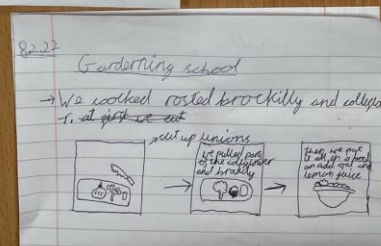 8.2.22
Garderning school
→ We coocked rosted brockilly and
1. at first we cut
cut up unions
we pulled parts
of the coliyflower
and brockilly
Then we put
it all in a pot
an add and
lemon juice